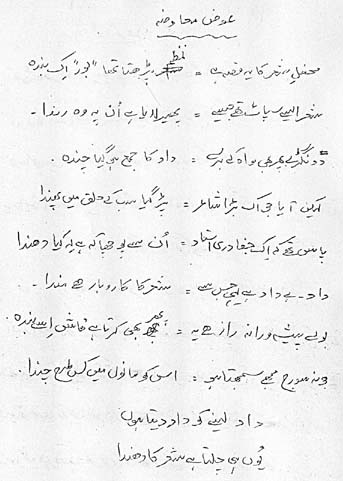 عوض معاوضہ
محفلِ شعر کا یہ قصہ ہے = نظم پڑھتا تھا "بور" اک بندہ
شعر ایسے سپاٹ تھے جیسے = پھیر لایا ہے اُن پہ وہ رندا۔
ڈونگرے پھر بھی واہ کے برسے = داد کا جمع ہو گیا چندہ۔
لیکن آیا جو اک بڑا شاعر = پڑ گیا سب کے حلق میں پھندا
پاس تھے کہ اک جغادری استاد = اُن سے پوچھا کہ ہے یہ کیا دھندا
داد۔ بے داد ہے یہی جس سے = شعر کا کاروبار ہے مندا۔
بولے پیشہ ورانہ راز ہے یہ = پھر بھی کرتا ہے فاش اسے بندہ۔
وہ نہ سورج مجھے سمجھتا ہو = اس کو مانوں میں کس طرح چندا۔
داد لینے کو داد دیتا ہوں
یُوں ہی چلتا ہے شعر کا دھندا